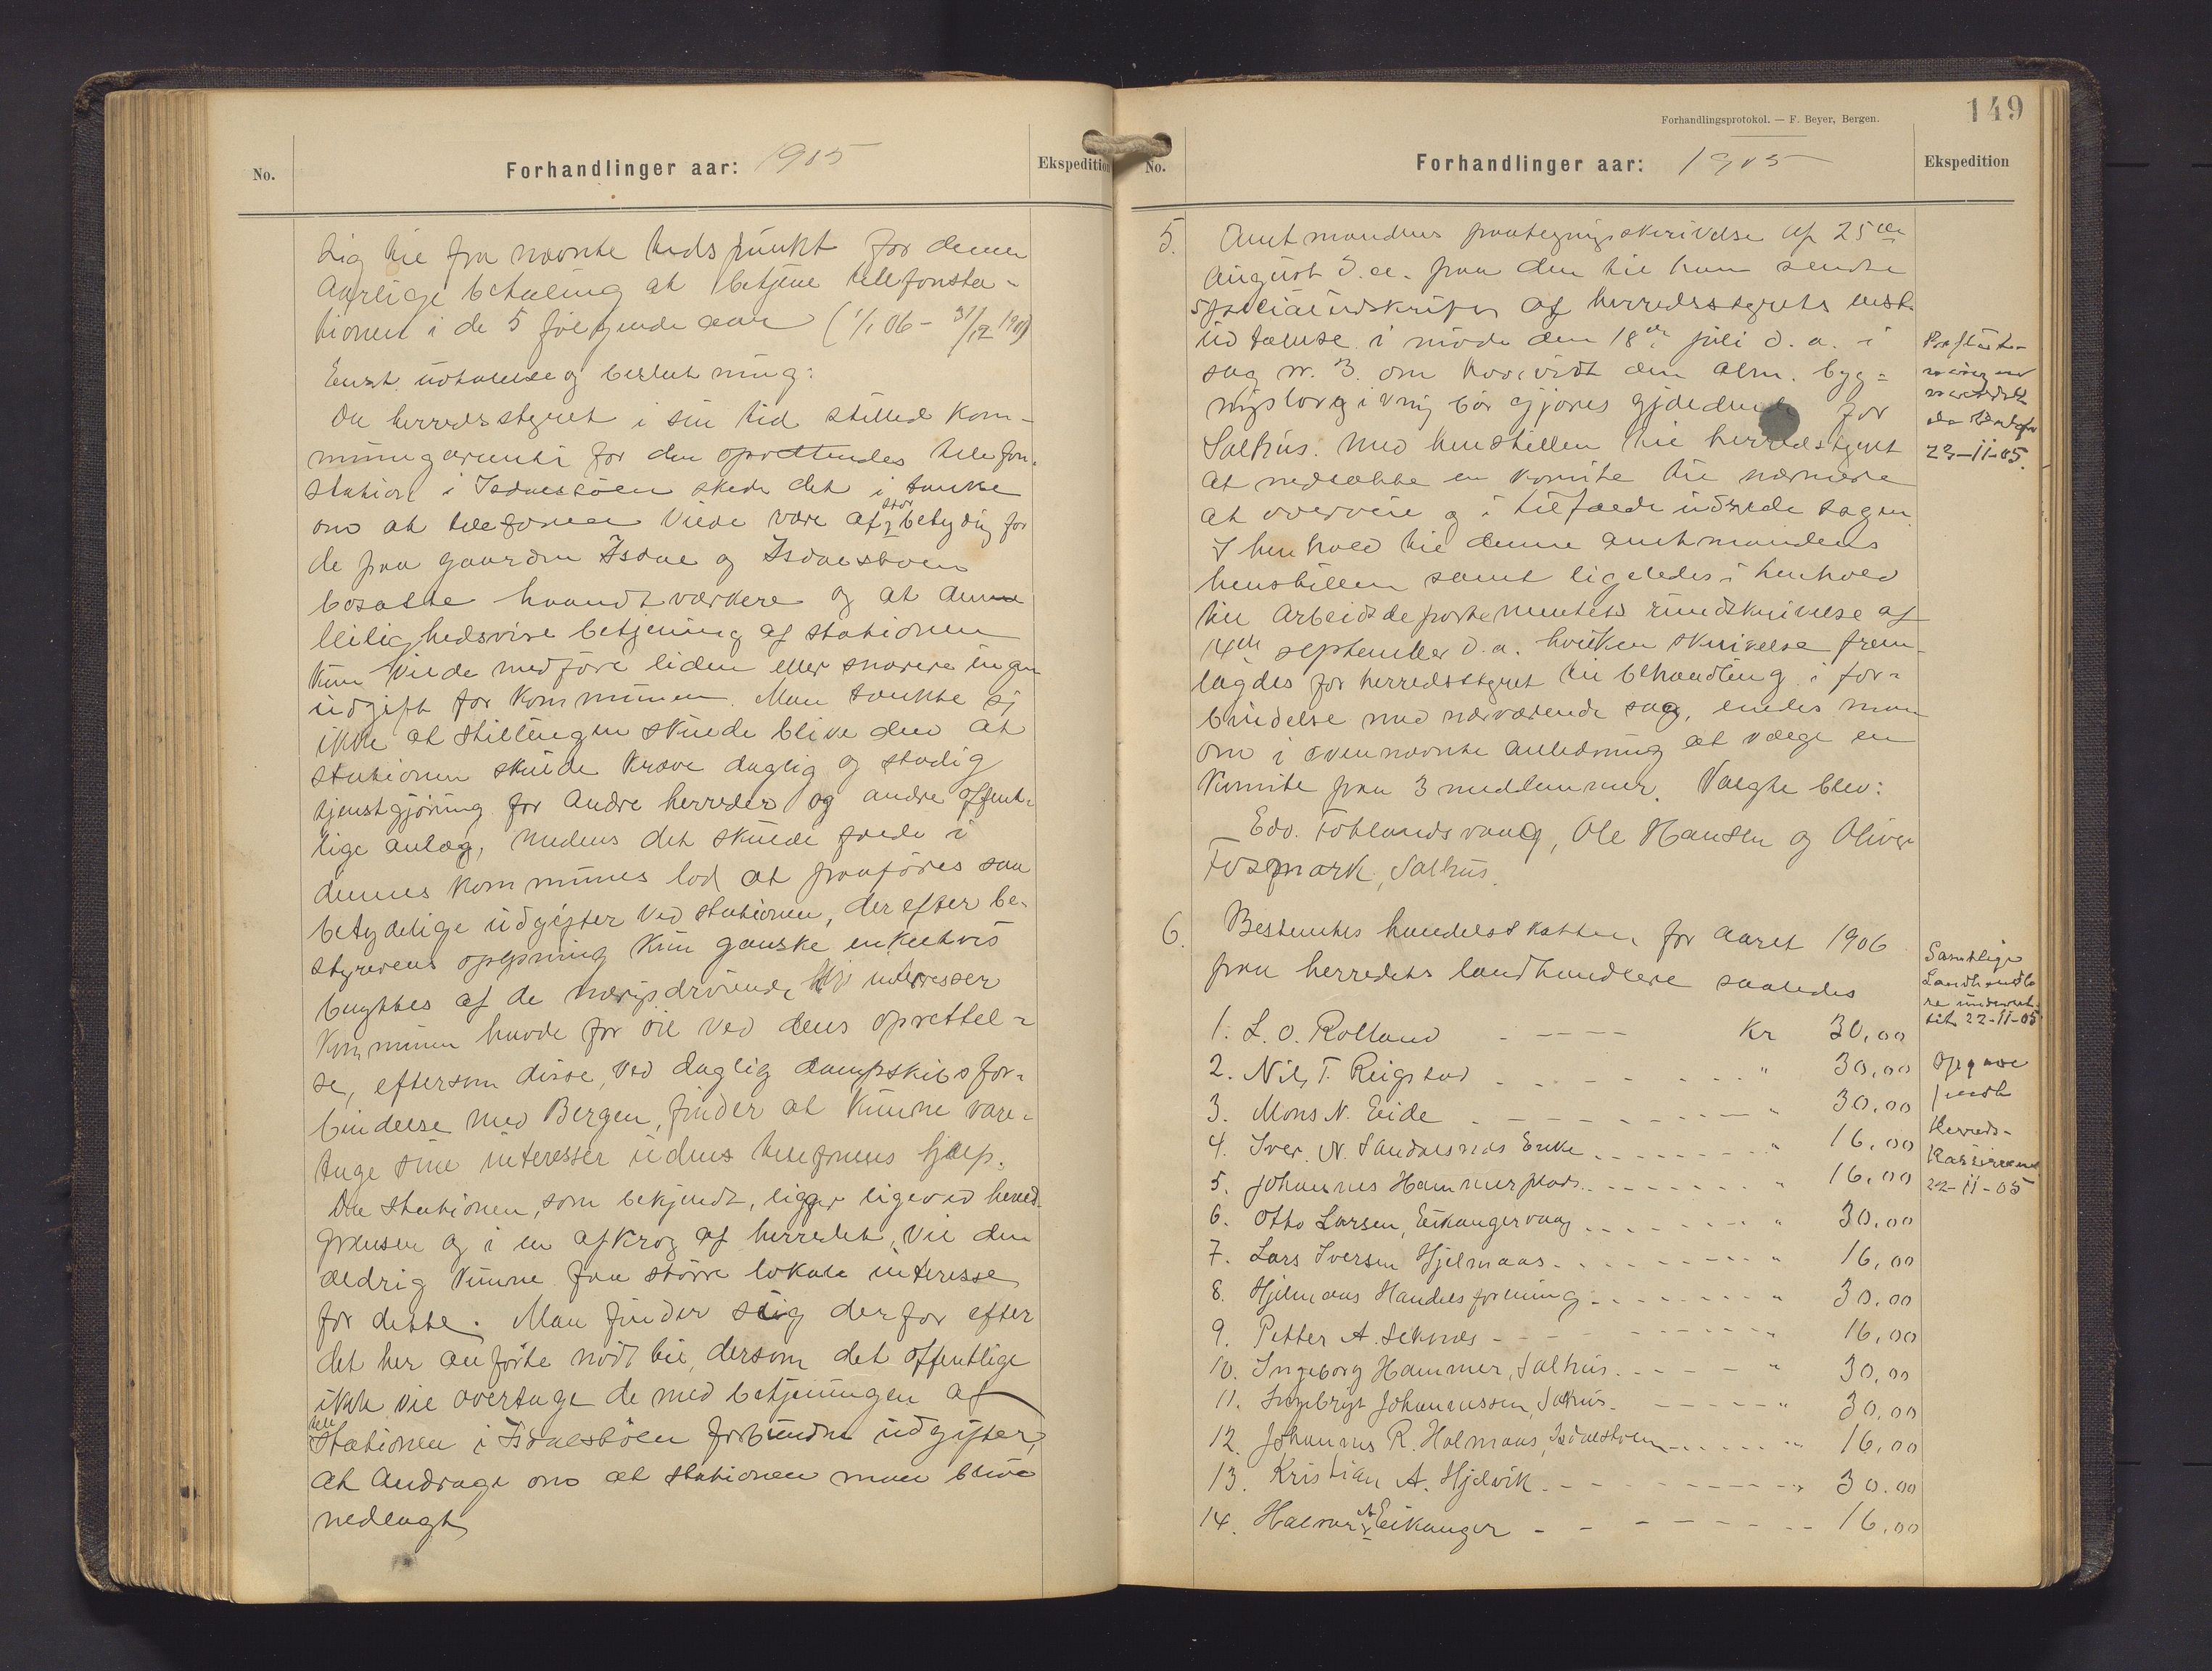 No.
Forhandlinger aar: 1905
Ekspedition
sig til fra nævnte tidspunkt for denne
aarlige betaling at betjene telefonsta-
tionen i de 5 følgende aar (1/1 06 - 31/12 1910)
Enst. udtalelse og beslutning:
Da herredsstyret i sin tid stilled kom-
munegaranti for den oprettendes telefon-
station i Isdalstøen skede det i tanke
om at telefonen vilde være af stor betydng for
de paa gaarden Isdal og Isdalstøen
bosatte haandtværkere og at denne
leilighedsvise betjening af stationen
kun vilde medføre liden eller snarere ingen
udgift for kommunen. Man tænkte sig
ikke at stillingen skulde blive den at
stationen skulde kræve daglig og stadig
tjenstgjøring for andre herreder og andre offent-
lige anlæg, medens det skulde falde i
dennes kommunes lod at paaføres saa
betydelige udgifter ved stationen, der efter be-
styrerens opgivning kun ganske enkeltvis
benyttes af de næringsdrivende, hvis interesser
kommunen havde for øie ved dens oprettel-
se, eftersom disse, ved daglig dampskibsfor-
bindelse med Bergen, finder at kunne vare-
tage sine interesser udens telefonens hjælp.
Da stationen, som bekjendt, ligger ligeved herred-
grænsen og i en afkrog af herredet, vil den
aldrig kunne faa større lokale interesse
for dette. Man finder sig derfor efter
det her anførte nødt til, dersom det offentlige
ikke vil overtage de med betjeningen af
tele
Stationen i Isdalstøen forbundne udgifter,
at andrage om at stationen maa blive
nedlagt
Forhandlingsprotokol. — F. Beyer, Bergen.
149
No.
Forhandlinger aar: 1905
Ekspedition
5. Amtmandens paategningsskrivelse af 25de
august d.a. paa den til ham sendte
specialudskrift af herredsstyrets enst.
udtalelse i møde den 18de juli d.a. i
sag nr. 3. om hvorvidt den alm. byg-
ningslovgivning bør gjøres gjældende for
Salhus. Med henstillen til herredsstyret
at nedsætte en komite til nærmere
at overveie og i tilfælde udrede sagen.
I henhold til denne amtmandens
henstillen samt ligeledes i henhold
til Arbeidsdepartementets rundskrivelse af
14de september d.a. hvilken skrivelse frem-
lagdes for herredsstyret til behandling i for-
bindelse med nærværende sag, enedes man
om i ovennævnte anledning at vælge en
Komite paa 3 medlemmer. Valgte blev:
Edv. Totlandsvaag, Ole Hansen og Oliver
Fosmark, Salhus.
23-11-05.
6. Bestemtes handelsskatten for aaret 1906
paa herredets landhandlere saaledes
1. L. O. Rolland - - - - Kr 30,00
2. Nils T. Reigstad - - - - " 30,00
3. Mons N. Eide - - - - " 30,00
4. Iver N. Sandalsnæs Enke - - - - " 16,00
5. Johannes Hammerplads - - - - " 16,00
6. Otto Larsen, Eikangervaag - - - - " 30,00
7. Lars Iversen Hjelmaas - - - - " 16,00
8. Hjelmaas Handelsforening - - - - " 30,00
9. Petter A. Seknæs - - - - " 16,00
10. Ingeborg Hammer, Salhus - - - - " 30,00
11. Ingebrigt Johannessen, Salhus - - - - " 30,00
12. Johannes R. Holmaas, Isdalstøen - - - - " 16,00
13. Kristian A. Hjelvik - - - - " 30.00
14. Halvor A. Eikanger - - - - " 16,00
Samtlige
Landhandle
re underret-
tet 22-11-05
Opgave
sendt
Herreds-
kassereren
22-11-05